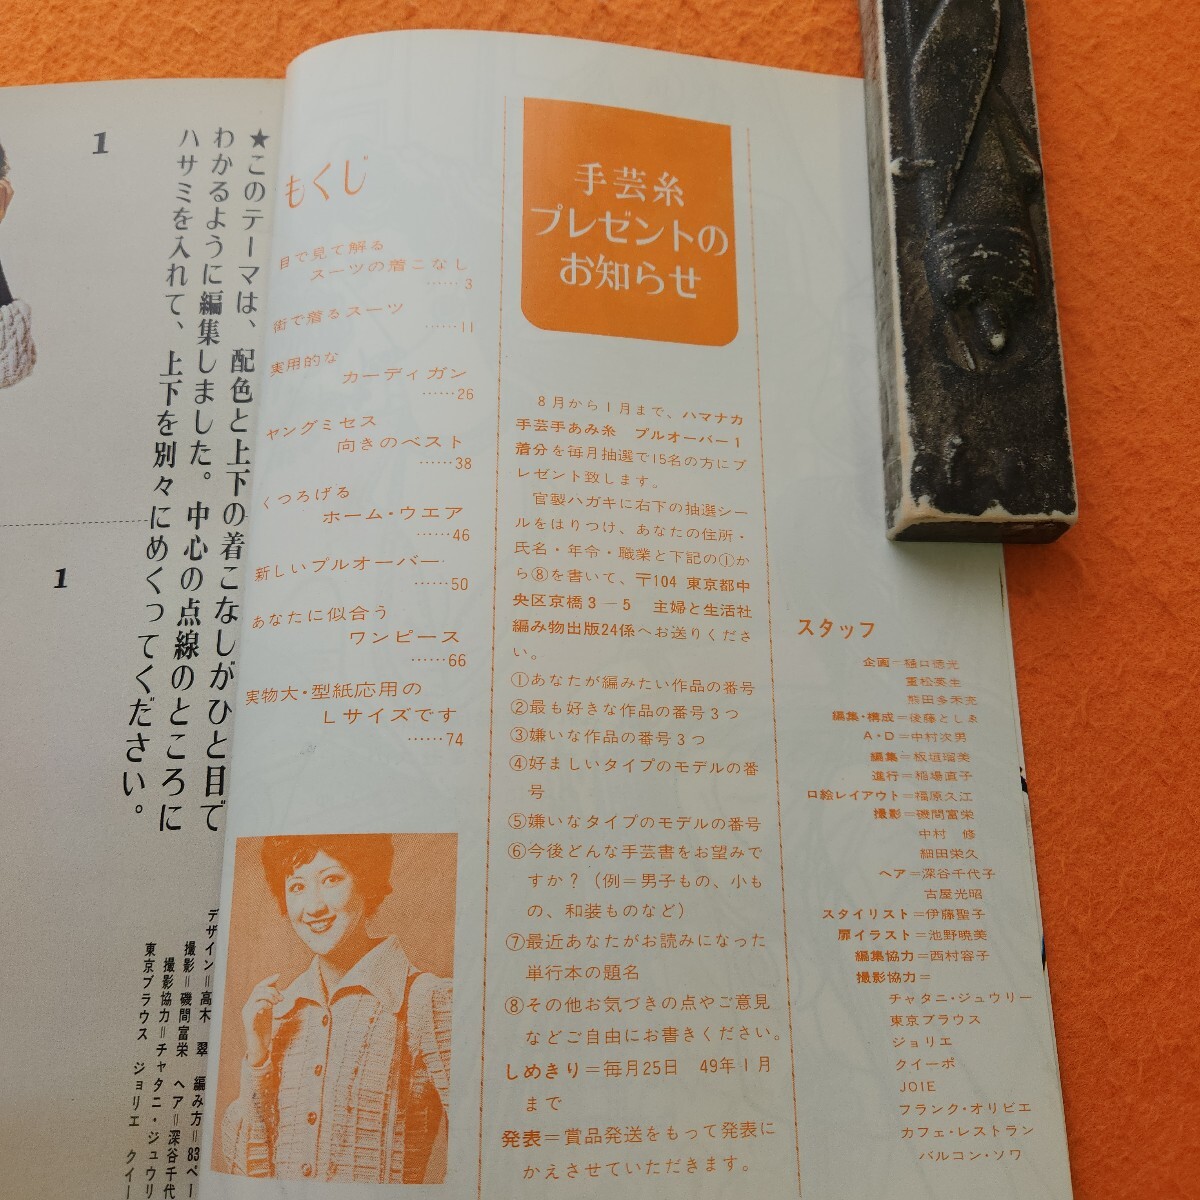 1
★このテーマは、配色と上下の着こなしがひと目で
わかるように編集しました。中心の点線のところに
ハサミを入れて、上下を別々にめくってください。
1
デザイン＝高木　翠　編み方＝83ペー
撮影＝磯間富栄　ヘア＝深谷千代
撮影協力＝チャタニ・ジュウリ
東京ブラウス　ジョリエ　クイー
もくじ
目で見て解る
スーツの着こなし
……3
街で着るスーツ
……11
実用的な
カーディガン
……26
ヤングミセス
向きのベスト
……38
くつろげる
ホーム・ウエア
……46
新しいプルオーバー
……50
あなたに似合う
ワンピース
……66
実物大・型紙応用の
Lサイズです
……74
手芸糸
プレゼントの
お知らせ
8月から1月まで、ハマナカ
手芸手あみ糸　プルオーバー1
着分を毎月抽選で15名の方にプ
レゼント致します。
官製ハガキに右下の抽選シー
ルをはりつけ、あなたの住所・
氏名・年令・職業と下記の①か
ら⑧を書いて、〒104 東京都中
央区京橋3－5　主婦と生活社
編み物出版24係へお送りくださ
い。
①あなたが編みたい作品の番号
②最も好きな作品の番号3つ
③嫌いな作品の番号3つ
④好ましいタイプのモデルの番
号
⑤嫌いなタイプのモデルの番号
⑥今後どんな手芸書をお望みで
すか？（例＝男子もの、小も
の、和装ものなど）
⑦最近あなたがお読みになった
単行本の題名
⑧その他お気づきの点やご意見
などご自由にお書きください。
しめきり＝毎月25日　49年1月
まで
発表＝賞品発送をもって発表に
かえさせていただきます。
スタッフ
企画＝樋口徳光
重松英生
熊田多禾充
編集・構成＝後藤としゑ
A・D＝中村次男
編集＝板垣瑠美
進行＝稲場直子
口絵レイアウト＝福原久江
撮影＝磯間富栄
中村　修
細田栄久
ヘア＝深谷千代子
古屋光昭
スタイリスト＝伊藤聖子
扉イラスト＝池野暁美
編集協力＝西村容子
撮影協力＝
チャタニ・ジュウリー
東京ブラウス
ジョリエ
クイーポ
JOIE
フランク・オリビエ
カフェ・レストラン
バルコン・ソワ